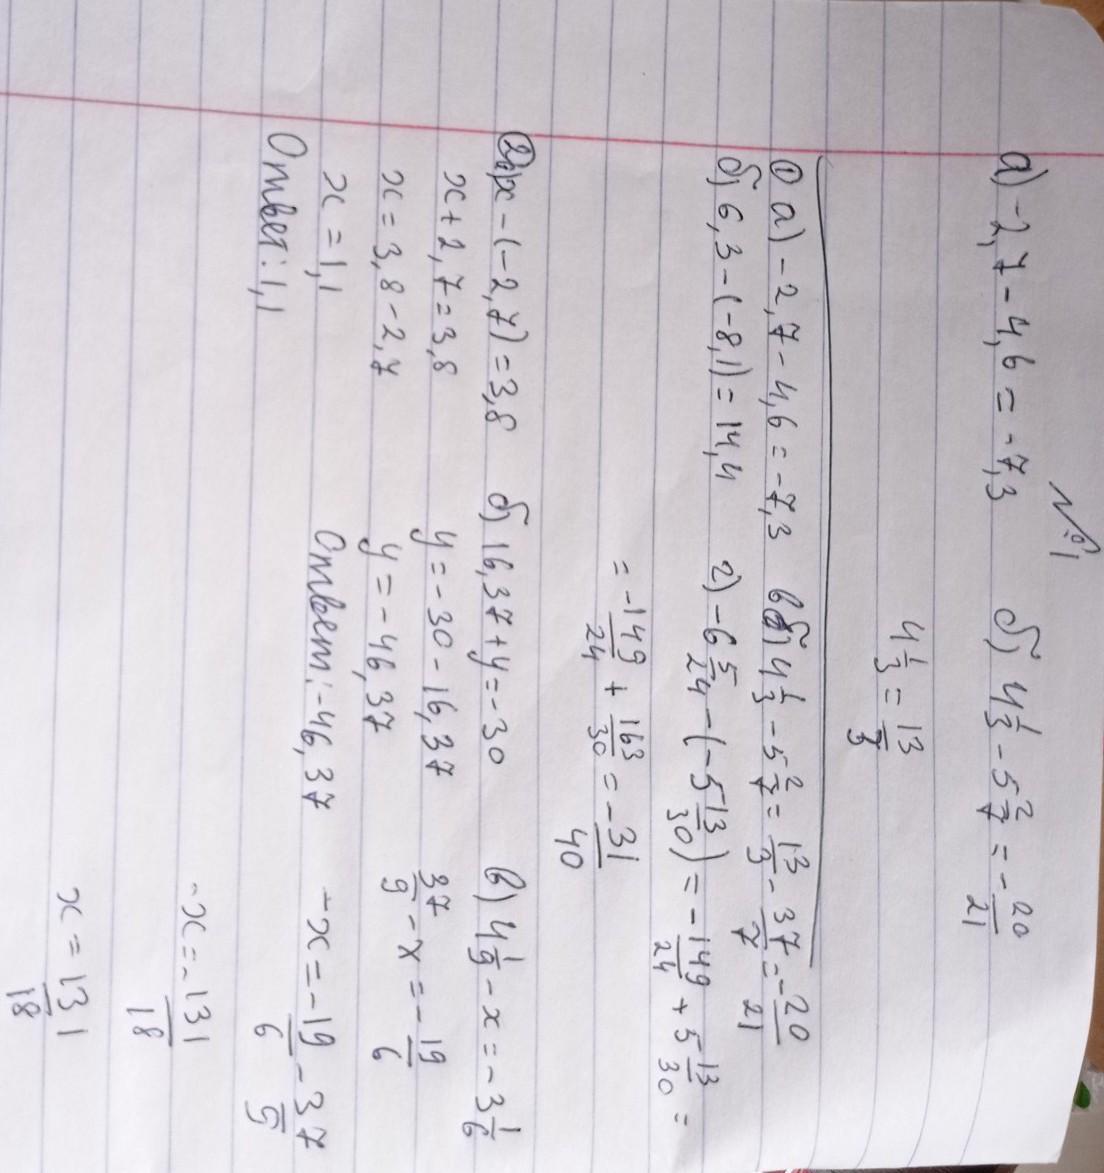 №1
а) -2,7-4,6=-7,3 б) 4 1/3 - 5 2/7 = -20/21
4 1/3 = 13/3
① а) -2,7-4,6=-7,3 в) 4 1/3 - 5 2/7 = 13/3 - 37/7 = -20/21
б) 6,3-(-8,1)=14,4 г) -6 5/24 - (-5 13/30) = -149/24 + 5 13/30 =
= -149/24 + 163/30 = -31/40
② а) x-(-2,7)=3,8 б) 16,37+y=-30 в) 4 1/9 - x = -3 1/6
x+2,7=3,8 y=-30-16,37 37/9 - x = -19/6
x=3,8-2,7 y=-46,37
x=1,1 Ответ:-46,37 -x = -19/6 - 37/9
Ответ:1,1
-x = -131/18
x = 131/18